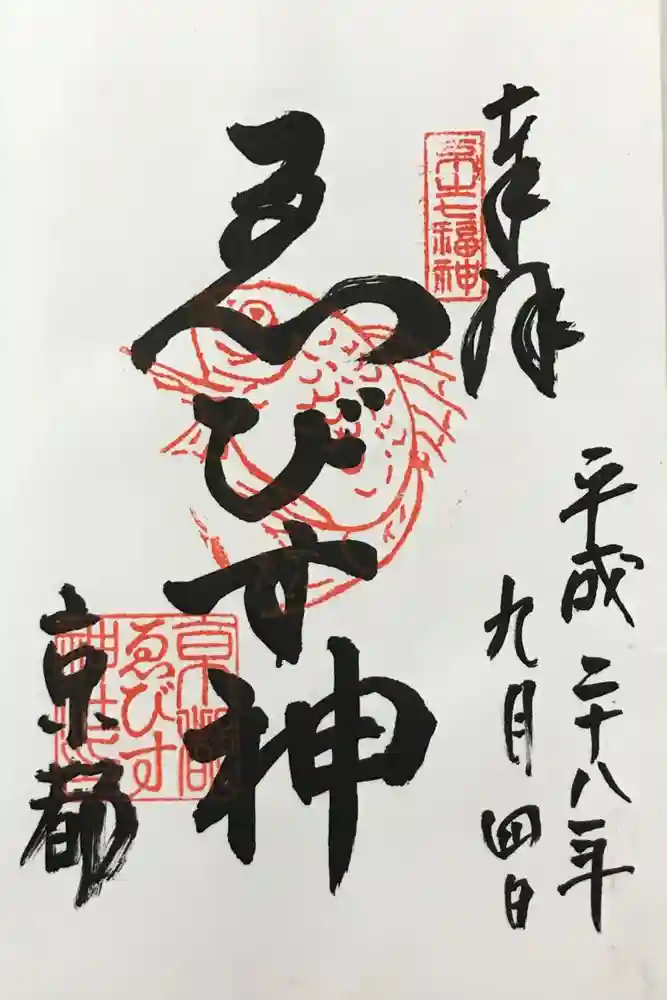 奉拝
平成二十八年
九月四日
七福神
ゑびす神
京都
ゑびす